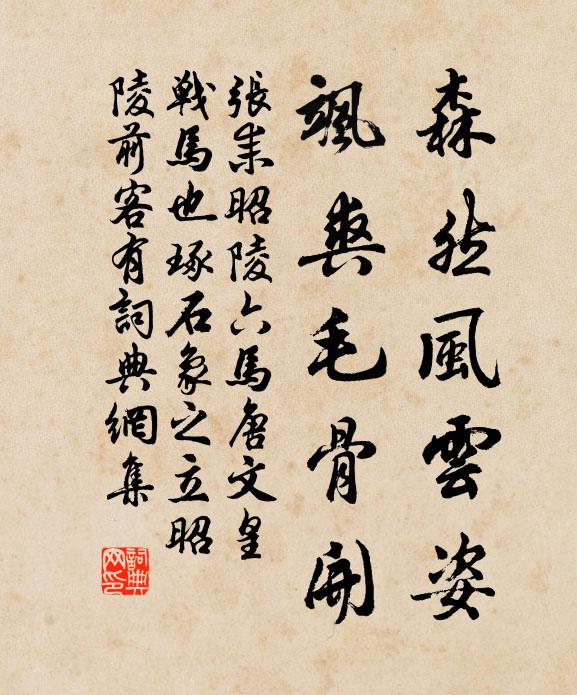 森然風雲姿
颯爽毛骨開
張耒昭陵六馬唐文皇
戦馬也琢石象之立昭
陵前客有詞典網集
詞典
网印